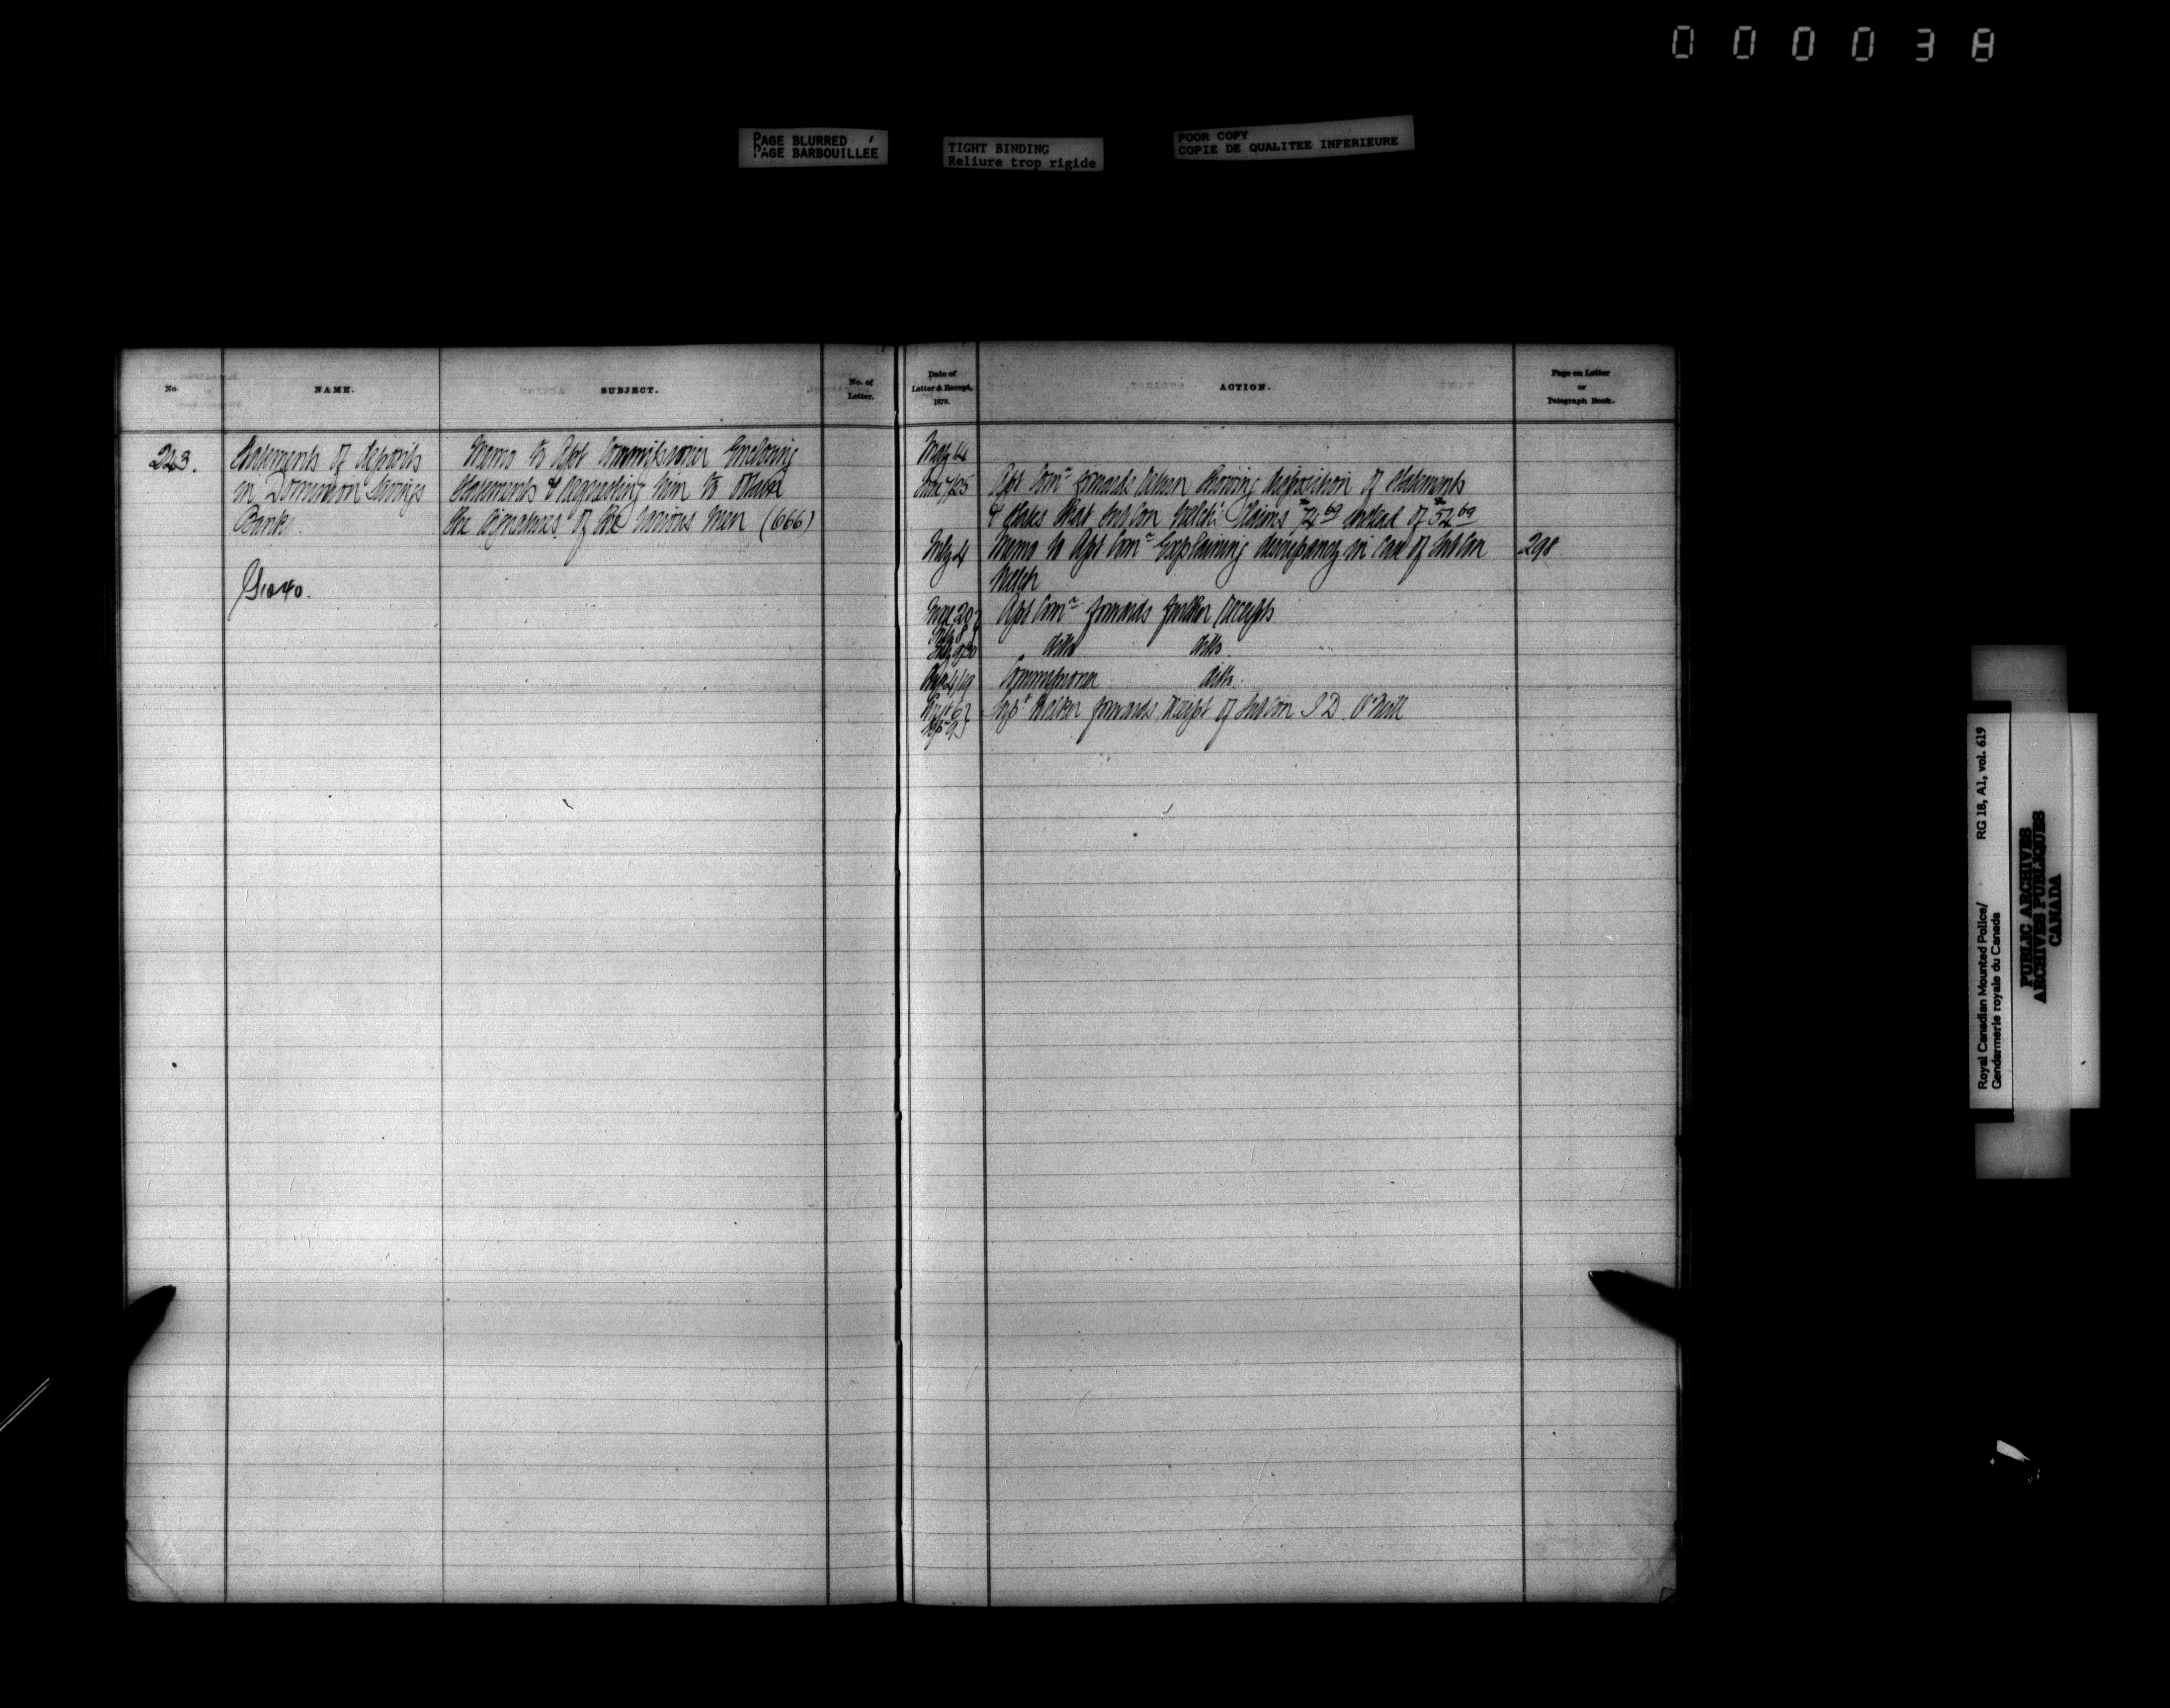 000038
PAGE BLURRED
PAGE BARBOUILLEE
TIGHT BINDING
Reliure trop rigide
POOR COPY
COPIE DE QUALITEE INFERIEURE
No.
NAME.
SUBJECT.
No. of
Letter.
Date of
Letter & Receipt,
1879.
ACTION.
Page on Letter
or
Telegraph Book.
243.
Statements of deposits
in Dominion Savings
Bank.
Memo to Asst Commissioner Enclosing
Statements & requesting him to obtain
the signatures of the various men (666)
May 14
June 7/25
Asst Comr forwards return showing disposition of Statements
& states that Sub Con Welch claims $74 69 instead of $54 69
July 4
Memo to Asst Comr Explaining discrepancy in case of Sub Con
Welch
298
Asst Comr forwards further receipts
ditto ditto
Commissioner ditto
Supt Walker forwards receipt of Sub Con O'Neill
Royal Canadian Mounted Police/
Gendarmerie royale du Canada
RG 18, A1, vol. 619
PUBLIC ARCHIVES
ARCHIVES PUBLIQUES
CANADA